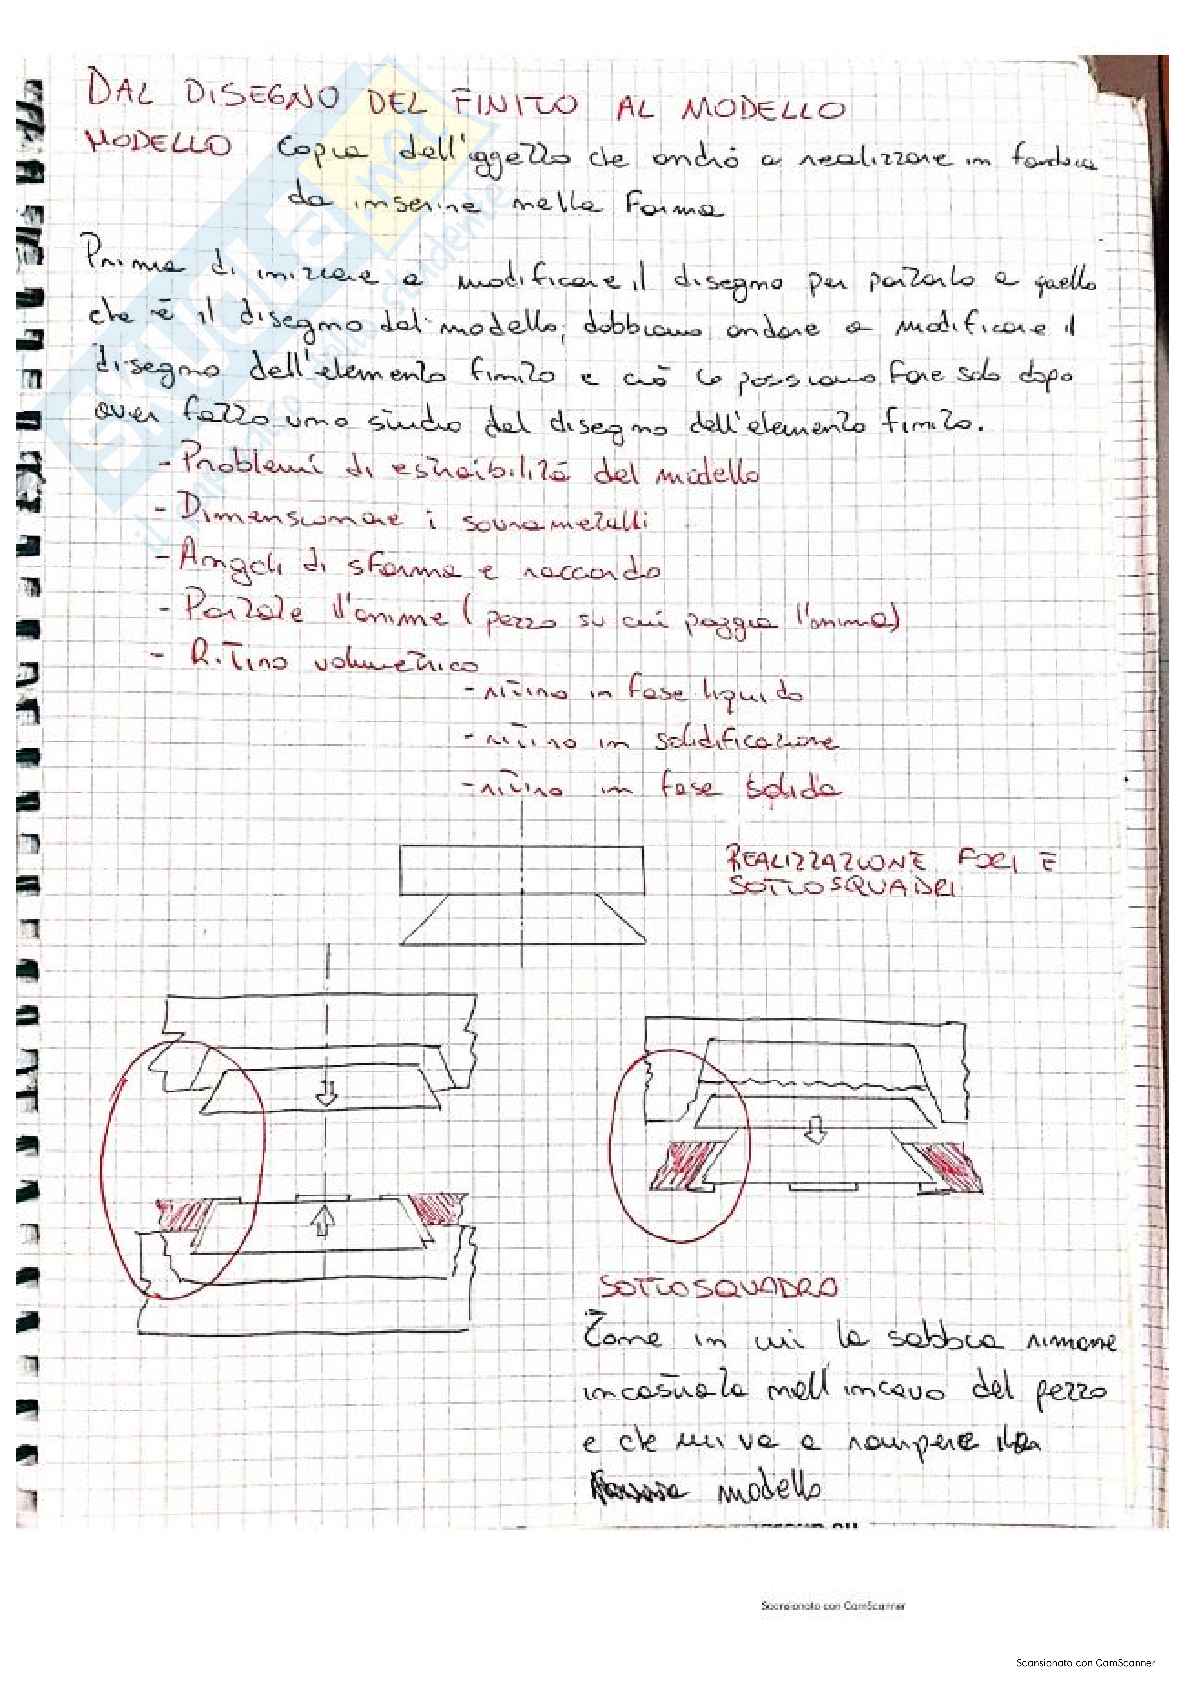 DAL DISEGNO DEL FINITO AL MODELLO
MODELLO copia dell'oggetto che andrò a realizzare in fonderia
da inserire nella forma
Prima di iniziare a modificare il disegno per portarlo a quello
che è il disegno del modello, dobbiamo andare a modificare il
disegno dell'elemento finito e ciò lo possiamo fare solo dopo
aver fatto uno studio del disegno dell'elemento finito.
- Problemi di estraibilità del modello
- Dimensionare i sovrametalli
- Angoli di sforma e raccordo
- Portate d'anime (pezzo su cui poggia l'anima)
- Ritiro volumetrico
- ritiro in fase liquida
- ritiro in solidificazione
- ritiro in fase solida
REALIZZAZIONE FORI E
SOTTOSQUADRI
SOTTOSQUADRO
Zone in cui la sabbia rimane
incastrata nell'incavo del pezzo
e che mi va a rompere il
modello
Scansionato con CamScanner
Scansionato con CamScanner